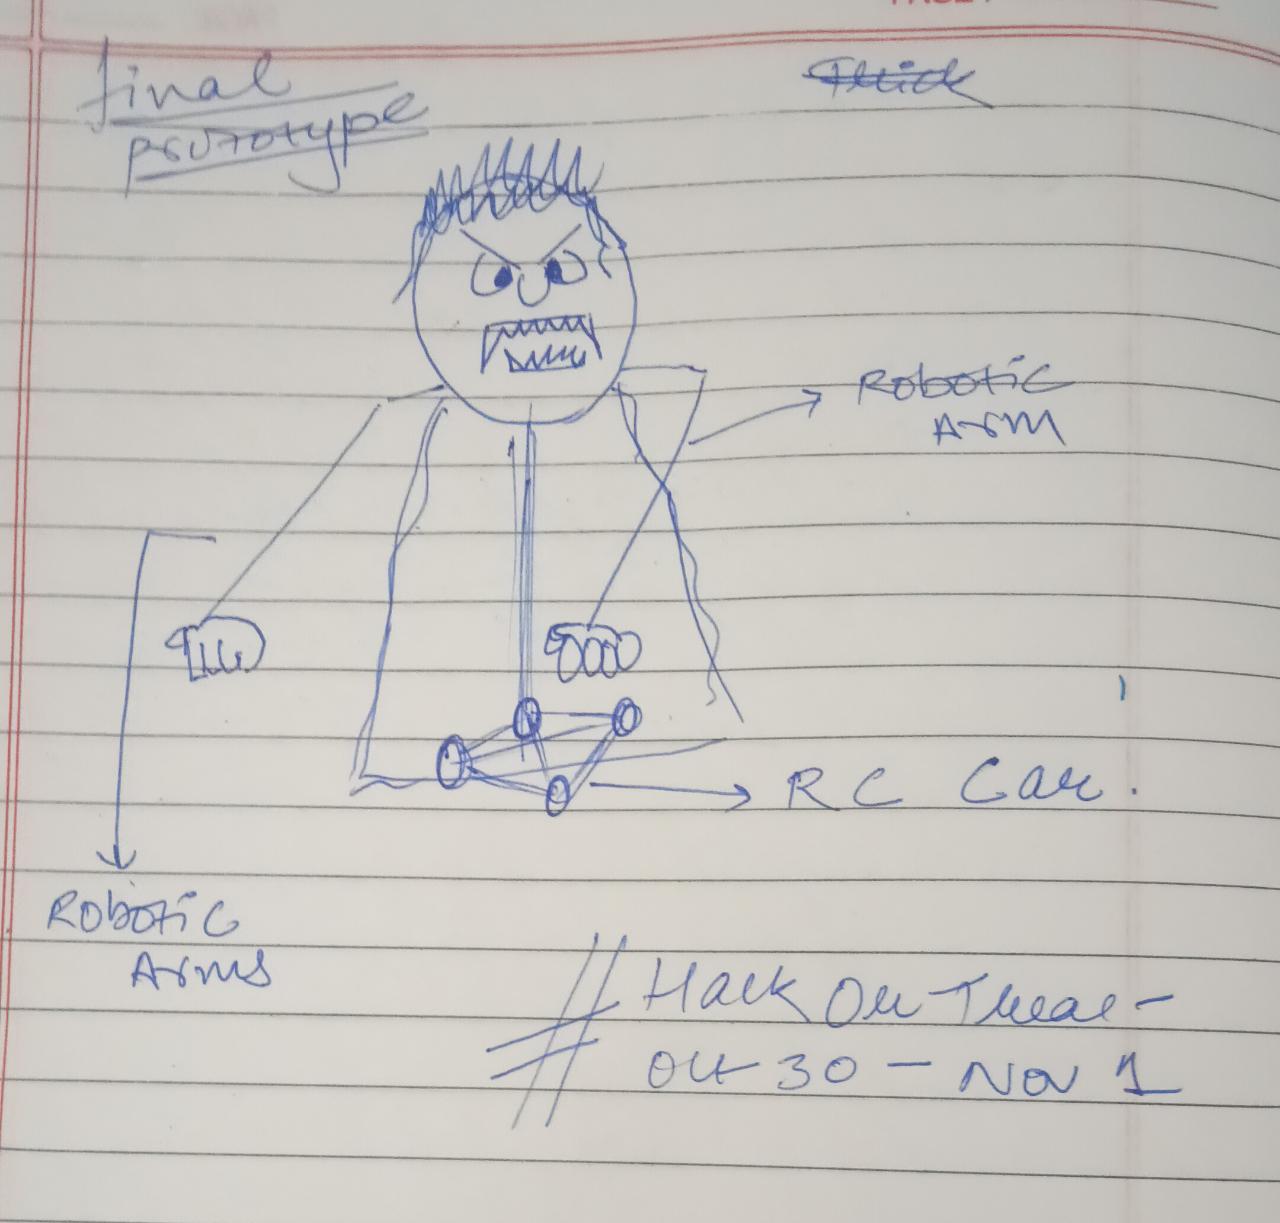 final
prototype
Robotic
Arm
RC Car.
Robotic
Arms
# Hack Or Treat -
Oct 30 - Nov 1